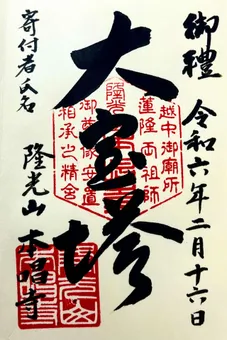 御禮
令和六年二月十六日
大宝塔
越中御廟所
蓮隆両祖師
御尊像安置
相承之精舎
寄付者氏名
隆光山
本唱寺